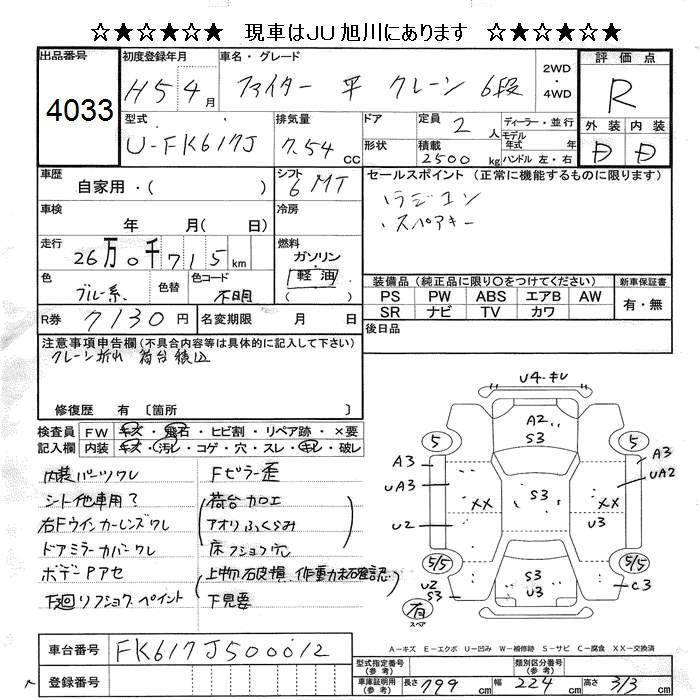 ☆★☆★☆★ 現車はJU旭川にあります ☆★☆★☆★
出品番号 4033
初度登録年月 H5 4月
車名・グレード ファイター 平 クレーン 6段
2WD・4WD
評価点 R
外装 D 内装 D
型式 U-FK617J
排気量 7.54 CC
ドア 形状
定員 2人
積載 2500kg
ディーラー・並行
モデル年式 年式
ハンドル 左・右
車歴 自家用・( )
シフト 6MT
車検 年 月( 日)
冷房
走行 26万0千715km
燃料 ガソリン・軽油 ( )
色 ブルー系 色替 色コード 不明
R券 7130円 名変期限 月 日
セールスポイント(正常に機能するものに限ります)
・ラジコン
・スペアキー
装備品(純正品に限り○をつけてください)
PS PW ABS エアB AW
SR ナビ TV カワ
新車保証書 有・無
後日品
注意事項申告欄(不具合内容等は具体的に記入して下さい)
クレーン折れ 荷台積込
修復歴 有 〔箇所 〕
検査員記入欄
FW キズ・飛石・ヒビ割・リペア跡・×要
内装 キズ・汚レ・コゲ・穴・スレ・キレ・破レ
内装パーツワレ
シート他車用?
右Fウインカーレンズワレ
ドアミラーカバーワレ
ボデーPアセ
下廻リフショク、ペイント
Fピラー歪
荷台加工
アオリふくらみ
床フショク穴
上物破損、作動未確認
下見要
U4・キレ
A2
S3
5
5
A3
UA3
U2
XX
S3
XX
U3
A3
UA2
5/5
5/5
U2
S3
S3
U3
C3
有
スペア
A-キズ E-エクボ U-凹み W-補修跡 S-サビ C-腐食 XX-交換済
車台番号 FK617J500012
登録番号
型式指定番号(参考)
類別区分番号(参考)
車庫証明用(参考) 長さ 799cm 幅 224cm 高さ 313cm